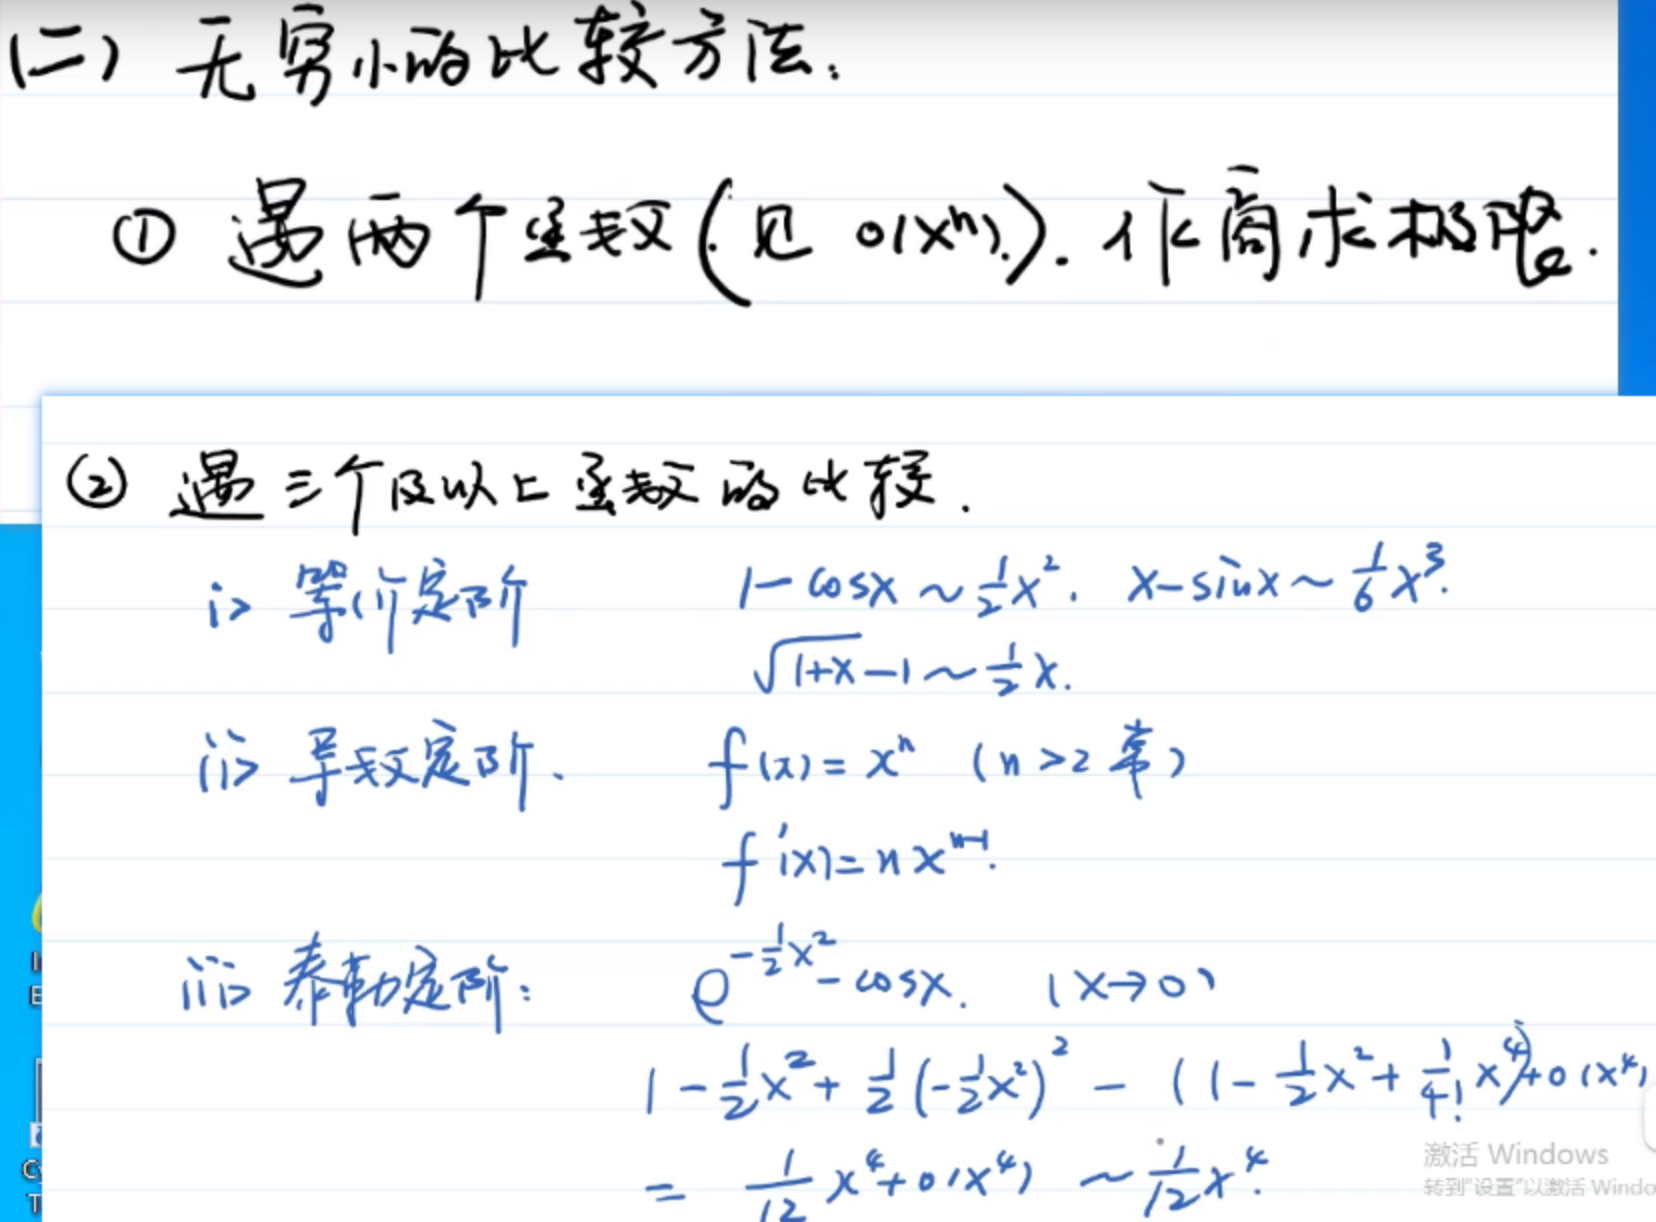 (二) 无穷小的比较方法:
① 遇两个函数(见 o(xⁿ)). 作商求极限.
② 遇三个及以上函数的比较.
i> 等价定阶 1-cosx ~ 1/2 x². x-sinx ~ 1/6 x³.
√(1+x) -1 ~ 1/2 x.
ii> 导数定阶. f(x) = xⁿ (n>2 常)
f'(x) = n xⁿ⁻¹.
iii> 泰勒定阶: e^(-1/2 x²) - cosx. (x→0)
1 - 1/2 x² + 1/2 (-1/2 x²)² - (1 - 1/2 x² + 1/4! x⁴) + o(x⁴)
= 1/12 x⁴ + o(x⁴) ~ 1/12 x⁴.
激活 Windows
转到"设置"以激活 Windo